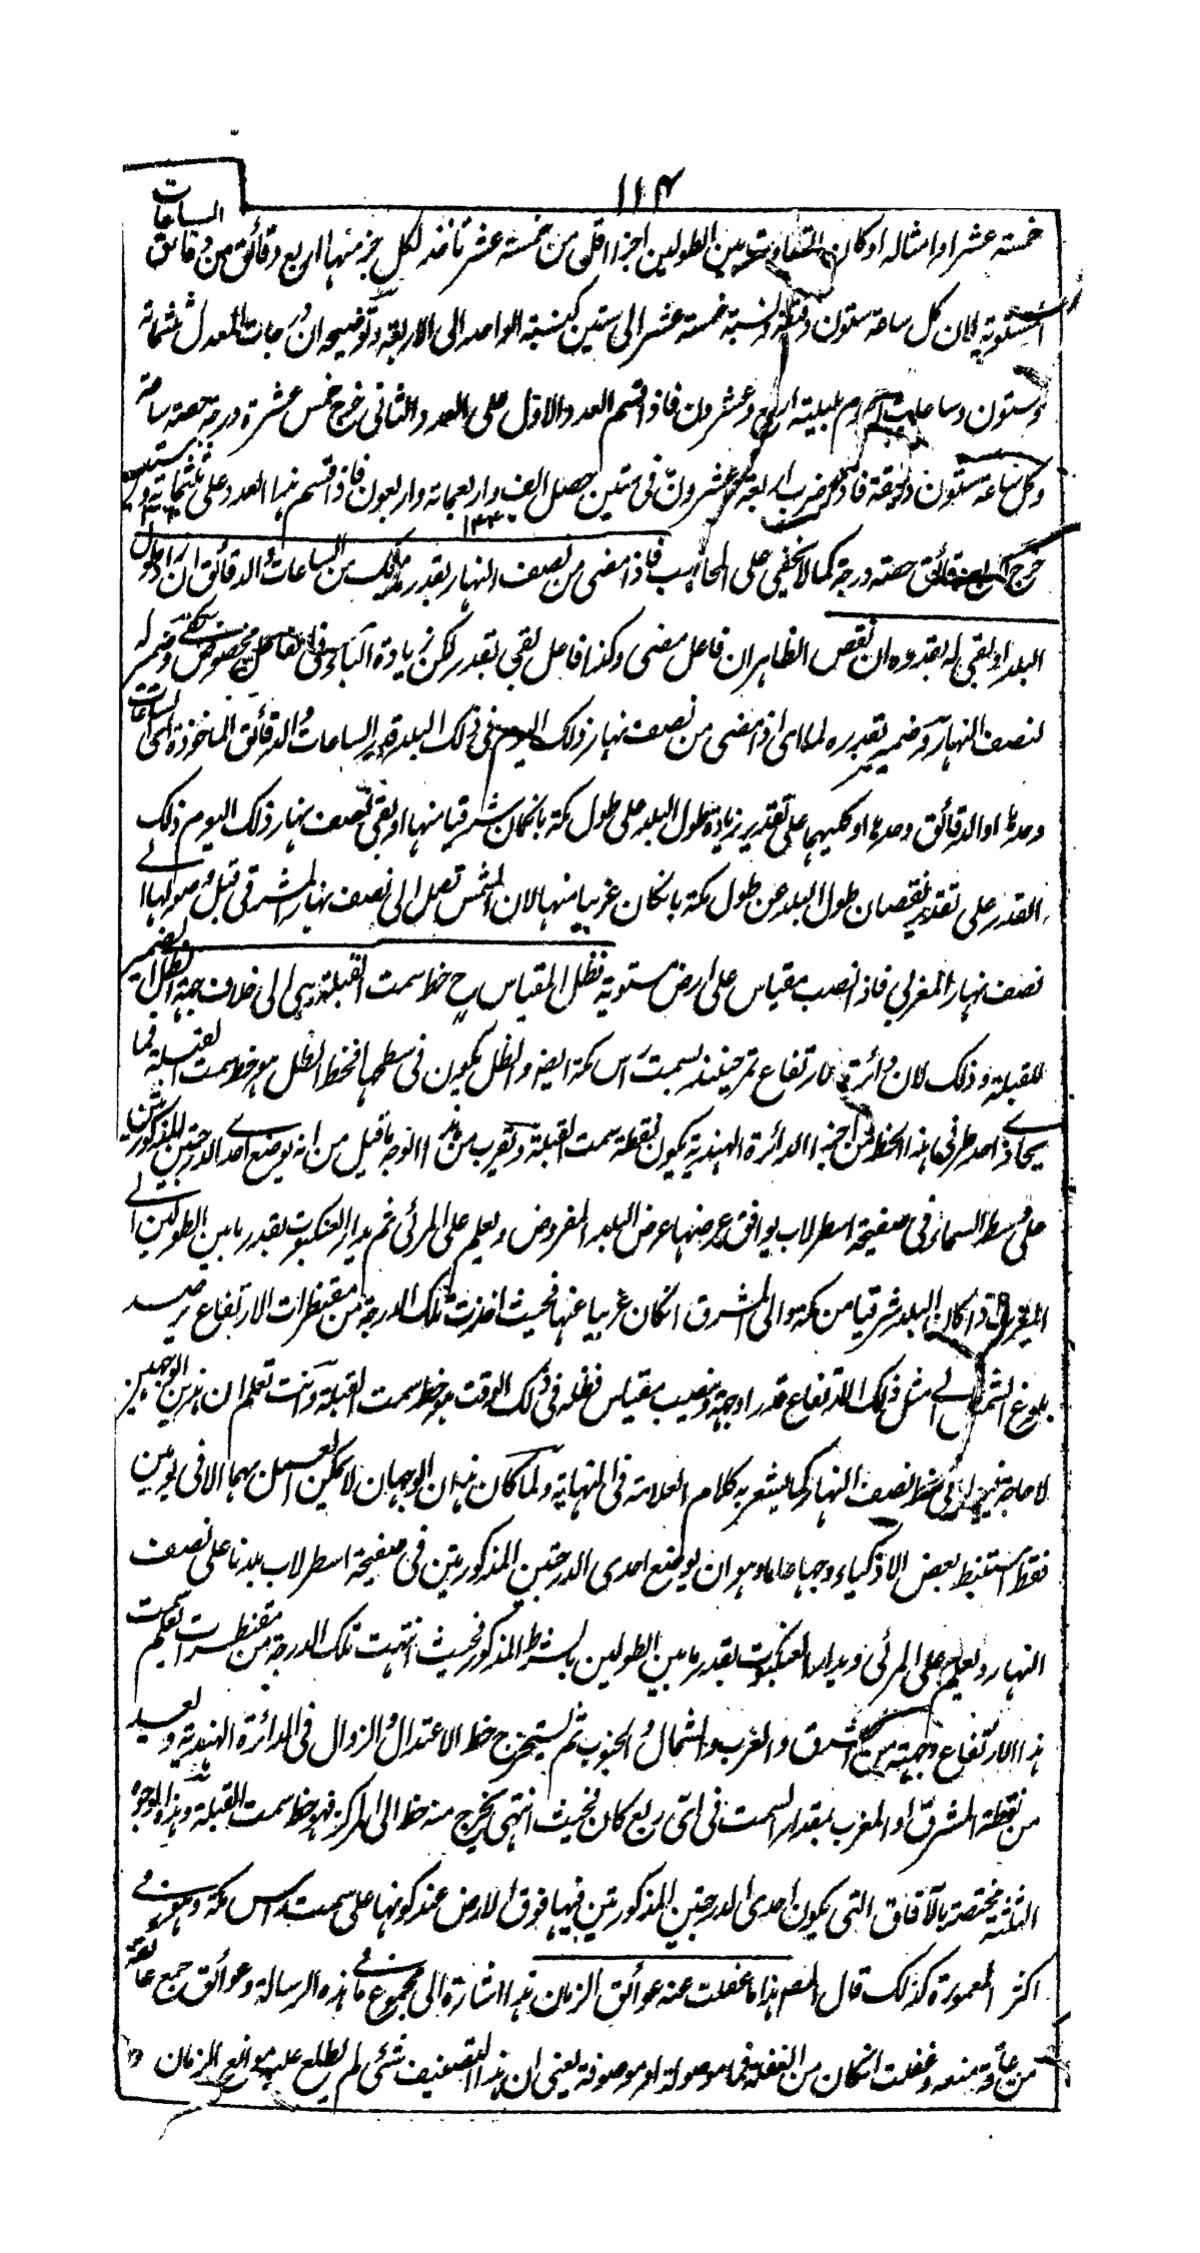 ١١٤
خمسة عشر او امثاله او كان التفاوت بين الطولين اجزا اقل من خمسة عشر تاخذ لكل جزء منها اربع دقائق من دقايق الساعات
المستوية لان كل ساعة ستون دقيقة ونسبة خمسة عشر الى ستين كنسبة الواحد الى الاربعة وتوضيحه ان درجات المعدل ثلثمائة
وستون وساعات اليوم بليلته اربع وعشرون فاذا قسم العدد الاول على العدد الثانى خرج خمس عشرة درجة حصة ساعة
وكل ساعة ستون دقيقة فاذا ضرب اربعة وعشرون فى ستين حصل الف واربعمائة واربعون فاذا قسم هذا العدد على ثلثمائة وستين
١٤٤٠
خرج اربع دقائق حصة درجة كما لا يخفى على المحاسب فاذا مضى من نصف النهار بقدر تلك من الساعات والدقائق ان زاد طول
البلد او بقى له بقدره ان نقص الظاهر ان فاعل مضى وكذا فاعل بقى بقدر لكن زيادة الباء فى الفاعل مخصوص بكفى وضمير له
لنصف النهار وضمير بقدره لما اى اذا مضى من نصف نهار ذلك اليوم فى ذلك البلد قدر الساعات والدقائق الماخوذة اى الساعات
وحدها او الدقائق وحدها او كليهما على تقدير زيادة طول البلد على طول مكة بان كان شرقيا منها او بقى لنصف نهار ذلك اليوم ذلك
القدر على تقدير نقصان طول البلد عن طول مكة بان كان غربيا منها لان الشمس تصل الى نصف نهار المشرقى قبل وصولها الى
نصف نهار المغربى فاذا نصب مقياس على ارض مستوية فظل المقياس ح خط سمت القبلة وهى الى خلاف جهة الظل
للقبلة وذلك لان دائرة الارتفاع تمر حينئذ بسمت راس مكة ايضا والظل يكون فى سطحها فخط الظل هو خط سمت القبلة فما
يحاذى احد طرفى هذا الخط من اجزاء الدائرة الهندية يكون نقطة سمت القبلة وتقرب من هذا الوجه ما قيل من انه يوضع احدى الدرجتين المذكورتين
على وسط السماء فى صفيحة اسطرلاب يوافق عرضها عرض البلد المفروض ويعلم على المرئى ثم يدار العنكبوت بقدر ما بين الطولين الى
المغرب اذا كان البلد شرقيا من مكة والى المشرق ان كان غربيا عنها فحيث اخذت تلك الدرجة من مقنطرات الارتفاع يرصد
بلوغ الشمس الى مثل ذلك الارتفاع قدرا وجهة وينصب مقياس فظله فى ذلك الوقت هو خط سمت القبلة وانت تعلم ان هذين الوجهين
لا حاجة فيهما الى خط نصف النهار كما يشعر به كلام العلامة فى النهاية ولما كان هذان الوجهان لا يمكن العمل بهما الا فى يومين
فقط استنبط بعض الاذكياء وجها عاما وهو ان يوضع احدى الدرجتين المذكورتين فى صفيحة اسطرلاب بلدنا على نصف
النهار ويعلم على المرئى ويدار العنكبوت بقدر ما بين الطولين بالشرط المذكور فحيث انتهت تلك الدرجة من مقنطرات تعلم سمت
هذا الارتفاع وجهته من المشرق والمغرب والشمال والجنوب ثم يستخرج خط الاعتدال والزوال فى الدائرة الهندية ويعد
من نقطة المشرق او المغرب بمقدار السمت فى اى ربع كان فحيث انتهى يخرج منه خط الى المركز فهو خط سمت القبلة وهذه الوجوه
الثلثة مختصة بالآفاق التى يكون احدى الدرجتين المذكورتين فيها فوق الارض عند كونها على سمت راس مكة وهو فى
اكثر المعمورة كذلك قال المصـ هذا ما غفلت عنه عوائق الزمان هذا اشارة الى مجموع ما فى هذه الرسالة وعوائق جمع عائقة
من عاقه منعه وغفلت ان كان من الغفلة فما موصولة او موصوفة يعنى ان هذا التصنيف شئ لم يطلع عليه موانع الزمان